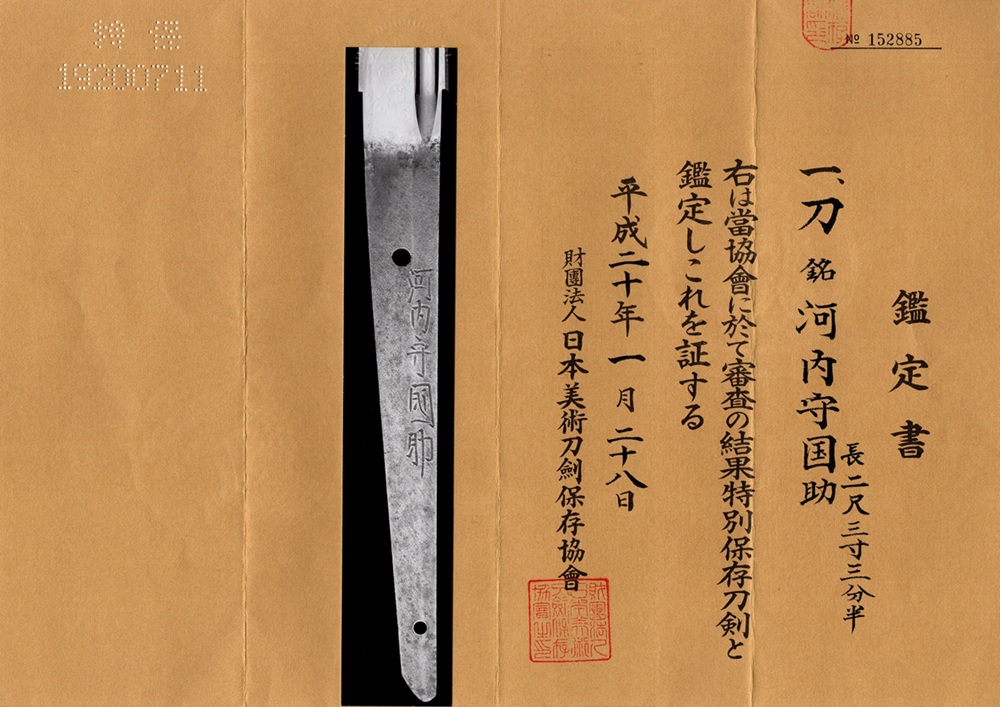 № 152885
鑑定書
一、刀 銘 河内守国助
長二尺三寸三分半
右は當協會に於て審査の結果特別保存刀剣と
鑑定しこれを証する
平成二十年一月二十八日
財團法人 日本美術刀劍保存協會
河内守國助
特保
19200711